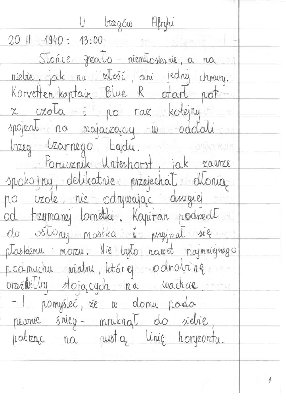 U brzegów Afryki
20 II 1940: 13:00
Słońce grzało niemiłosiernie, a na
niebie, jak na złość, ani jednej chmury.
Korvettenkapitan Blue R otarł pot
z czoła i po raz kolejny
spojrzał na majaczący w oddali
brzeg Czarnego Lądu.
Porucznik Unterhorst, jak zawsze
spokojny, delikatnie przejechał dłonią
po czole nie odrywając drugiej
od trzymanej lornetki. Kapitan podszedł
do osłony mostka i przyjrzał się
płaskiemu morzu. Nie było nawet najmniejszego
podmuchu wiatru, który odrobinę
stojących na wachcie.
- I pomyśleć, że w domu pada
pewnie śnieg - mruknął do siebie,
patrząc na pustą linię horyzontu.
1